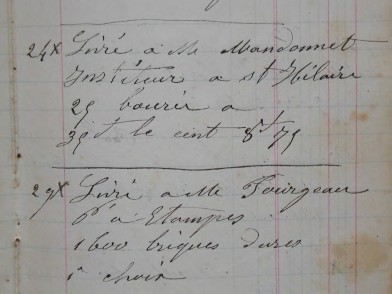 24 x Livré a Mr Mandonnet
Instituteur a St Hilaire
25 bourée a
35f le cent 8f 75
29 x Livré a Mr Fourgeau
a Etampes
1600 briques dures
1r choix